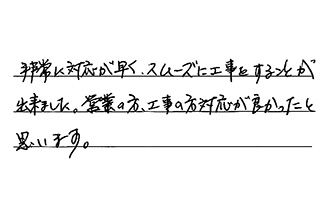 非常に対応が早く、スムーズに工事をすることが
出来ました。営業の方、工事の方対応が良かったと
思います。